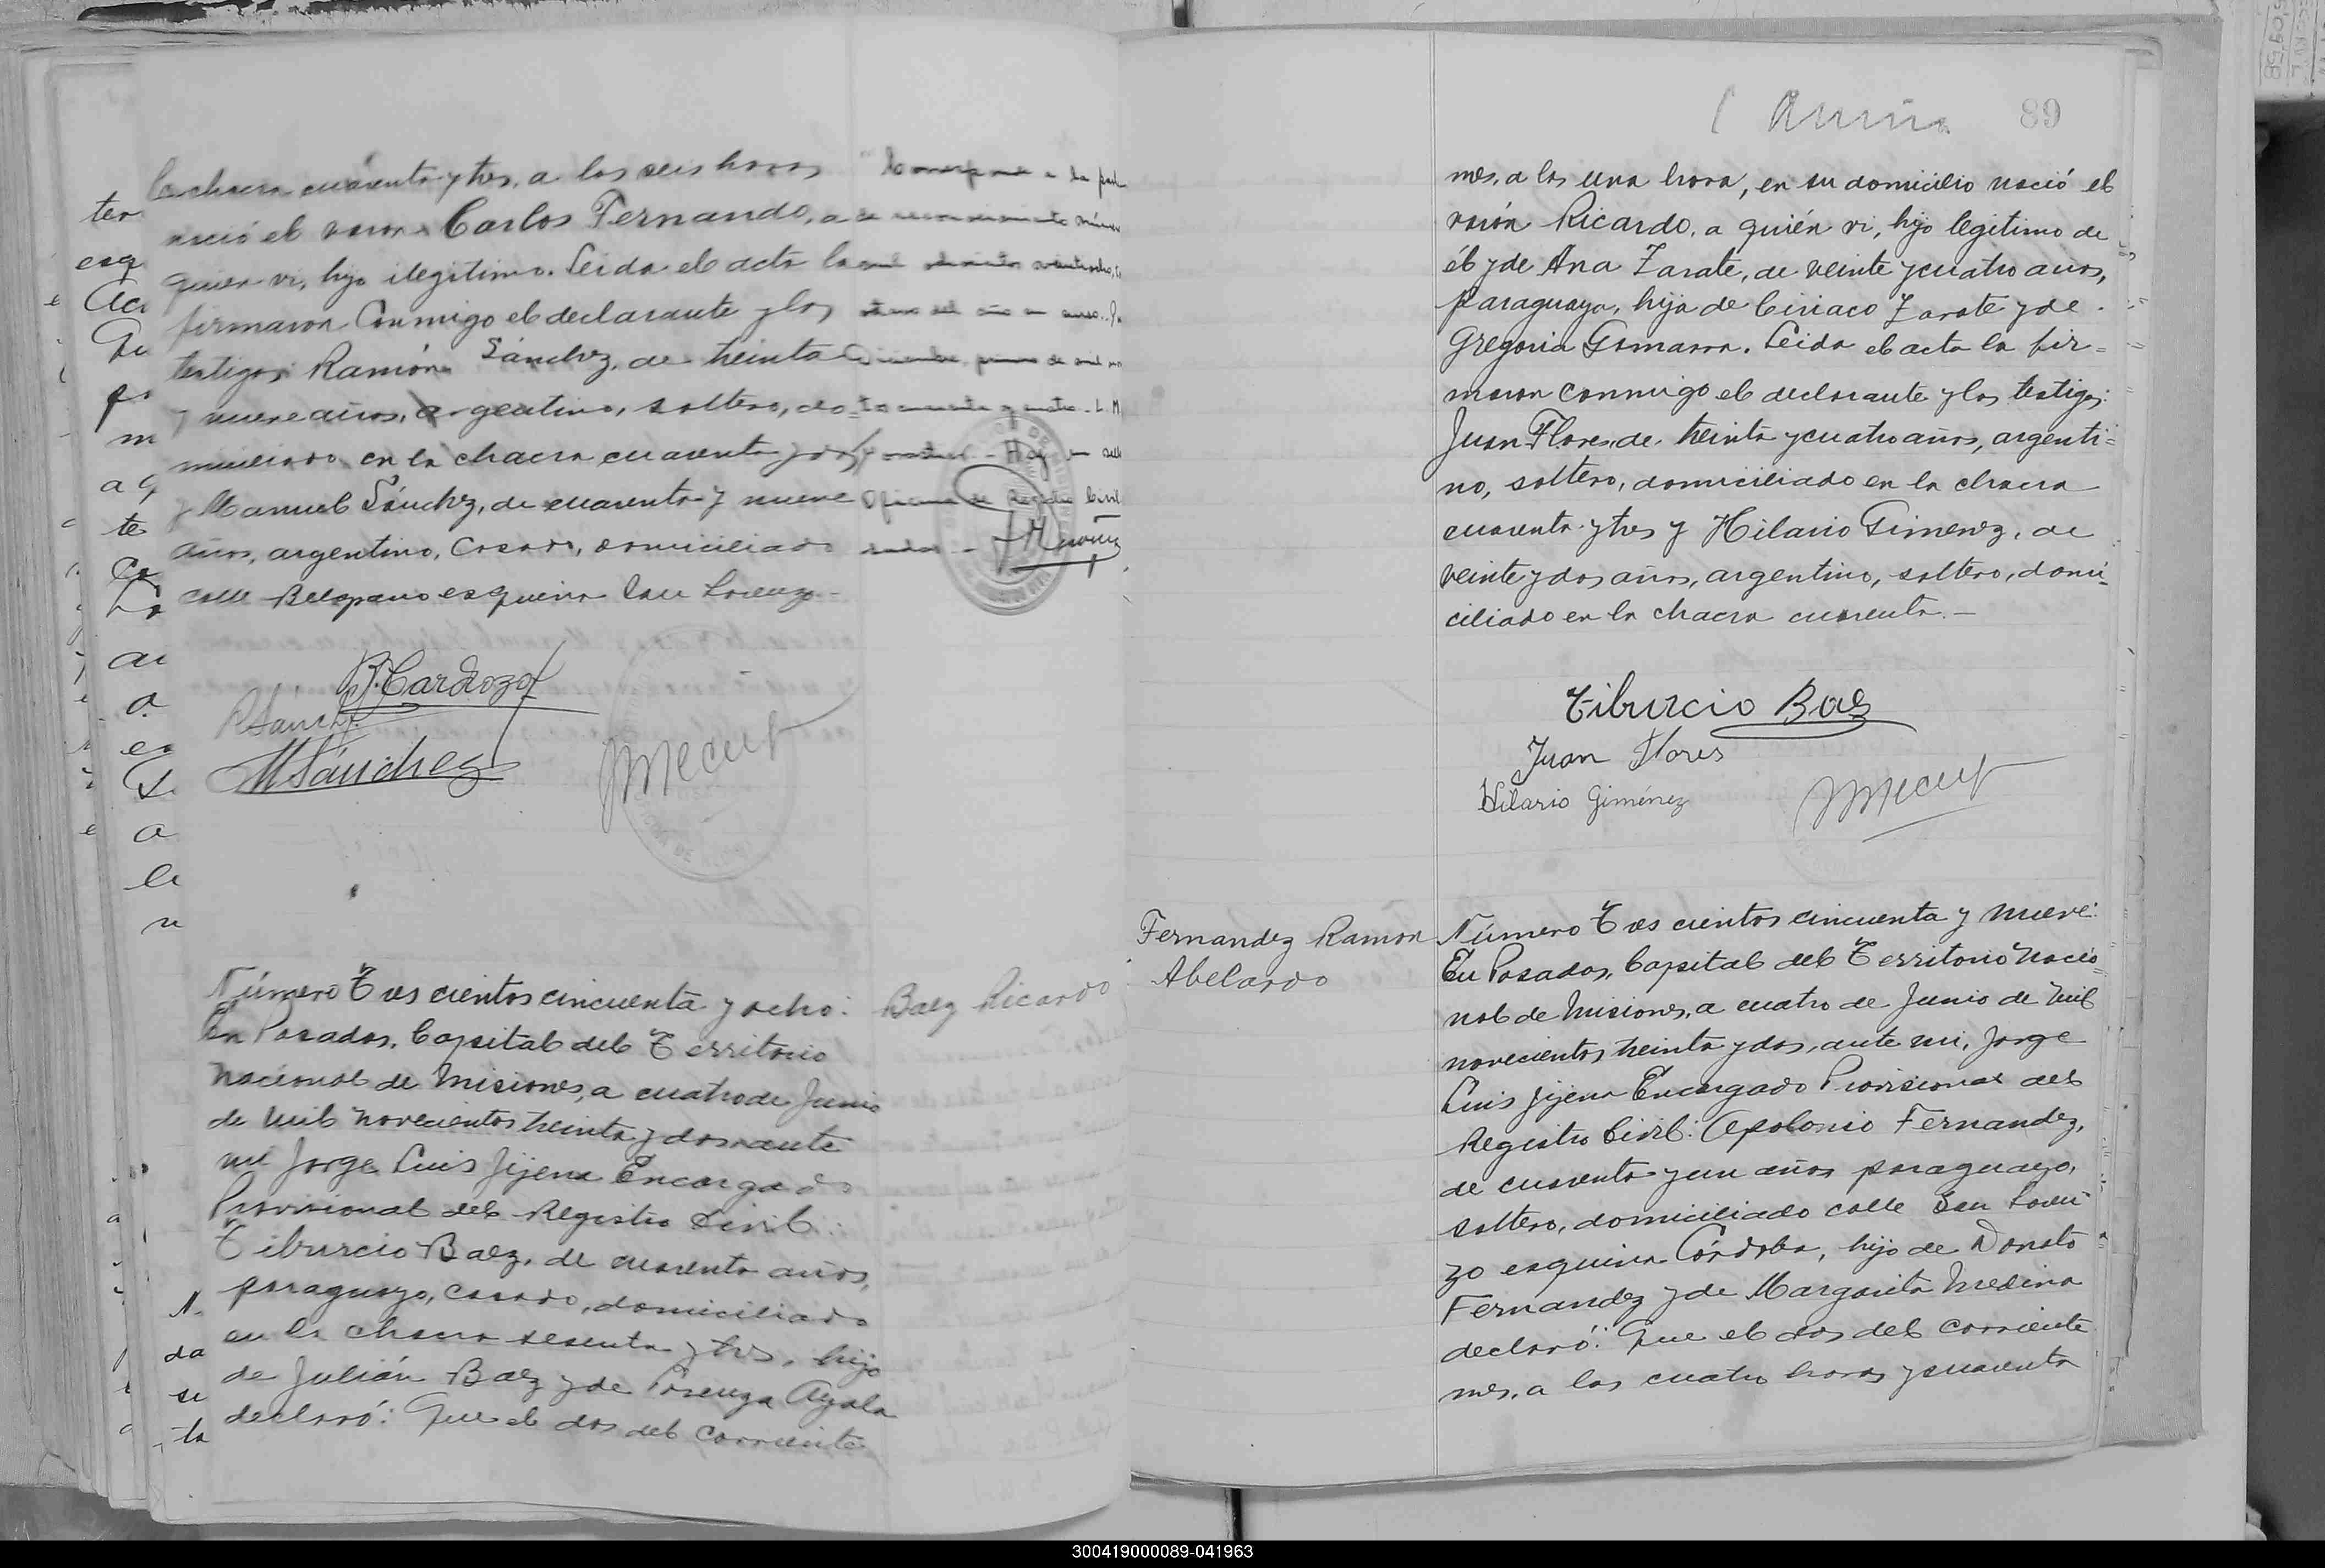 la chacra cuarenta y tres, a las seis horas
nació el varón Carlos Fernando, a
quien vi, hijo ilegitimo. Leida el acta la
firmaron Conmigo el declarante y los
testigos Ramón Sánchez, de treinta
y nueve años, argentino, soltero, do
miciliado en la chacra cuarenta y dos
y Manuel Sánchez, de cuarenta y nueve
años, argentino, Casado, domiciliado
calle Belgrano esquina San Lorenzo.-
Corresponde a la
de reconocimiento
Hay un
Oficina de Registro Civil
B. Cardozo
R Sánchez
M Sánchez
Número Tres cientos cincuenta y ocho:
En Posadas, Capital del Territorio
Nacional de Misiones, a cuatro de Junio
de mil novecientos treinta y dos, ante
mi Jorge Luis Jijena Encargado
Provisional del Registro Civil:
Tiburcio Baez, de cuarenta años,
paraguayo, casado, domiciliado
en la chacra sesenta y tres, hijo
de Julián Baez y de Lorenza Ayala
declaró: Que el dos del corriente
Baez Ricardo
89
mes, a las una hora, en su domicilio nació el
varón Ricardo, a quién vi, hijo legitimo de
él y de Ana Zarate, de veinte y cuatro años,
paraguaya, hija de Ciriaco Zarate y de
Gregoria Gamarra. Leida el acta la fir=
maron conmigo el declarante y los testigos:
Juan Flores, de treinta y cuatro años, argenti=
no, soltero, domiciliado en la chacra
cuarenta y tres y Hilario Gimenez, de
veinte y dos años, argentino, soltero, domi-
ciliado en la chacra cuarenta.-
Tiburcio Baez
Juan Flores
Hilario Giménez
Fernandez Ramon
Abelardo
Número Tres cientos cincuenta y nueve:
En Posadas, Capital del Territorio Nacio=
nal de Misiones, a cuatro de Junio de mil
novecientos treinta y dos, ante mi, Jorge
Luis Jijena Encargado Provisional del
Registro Civil: Apolonio Fernandez,
de cuarenta y un años paraguayo,
soltero, domiciliado calle San Loren-
zo esquina Córdoba, hijo de Donato
Fernandez y de Margarita Medina
declaró: Que el dos del corriente
mes, a las cuatro horas y cuarenta
300419000089-041963